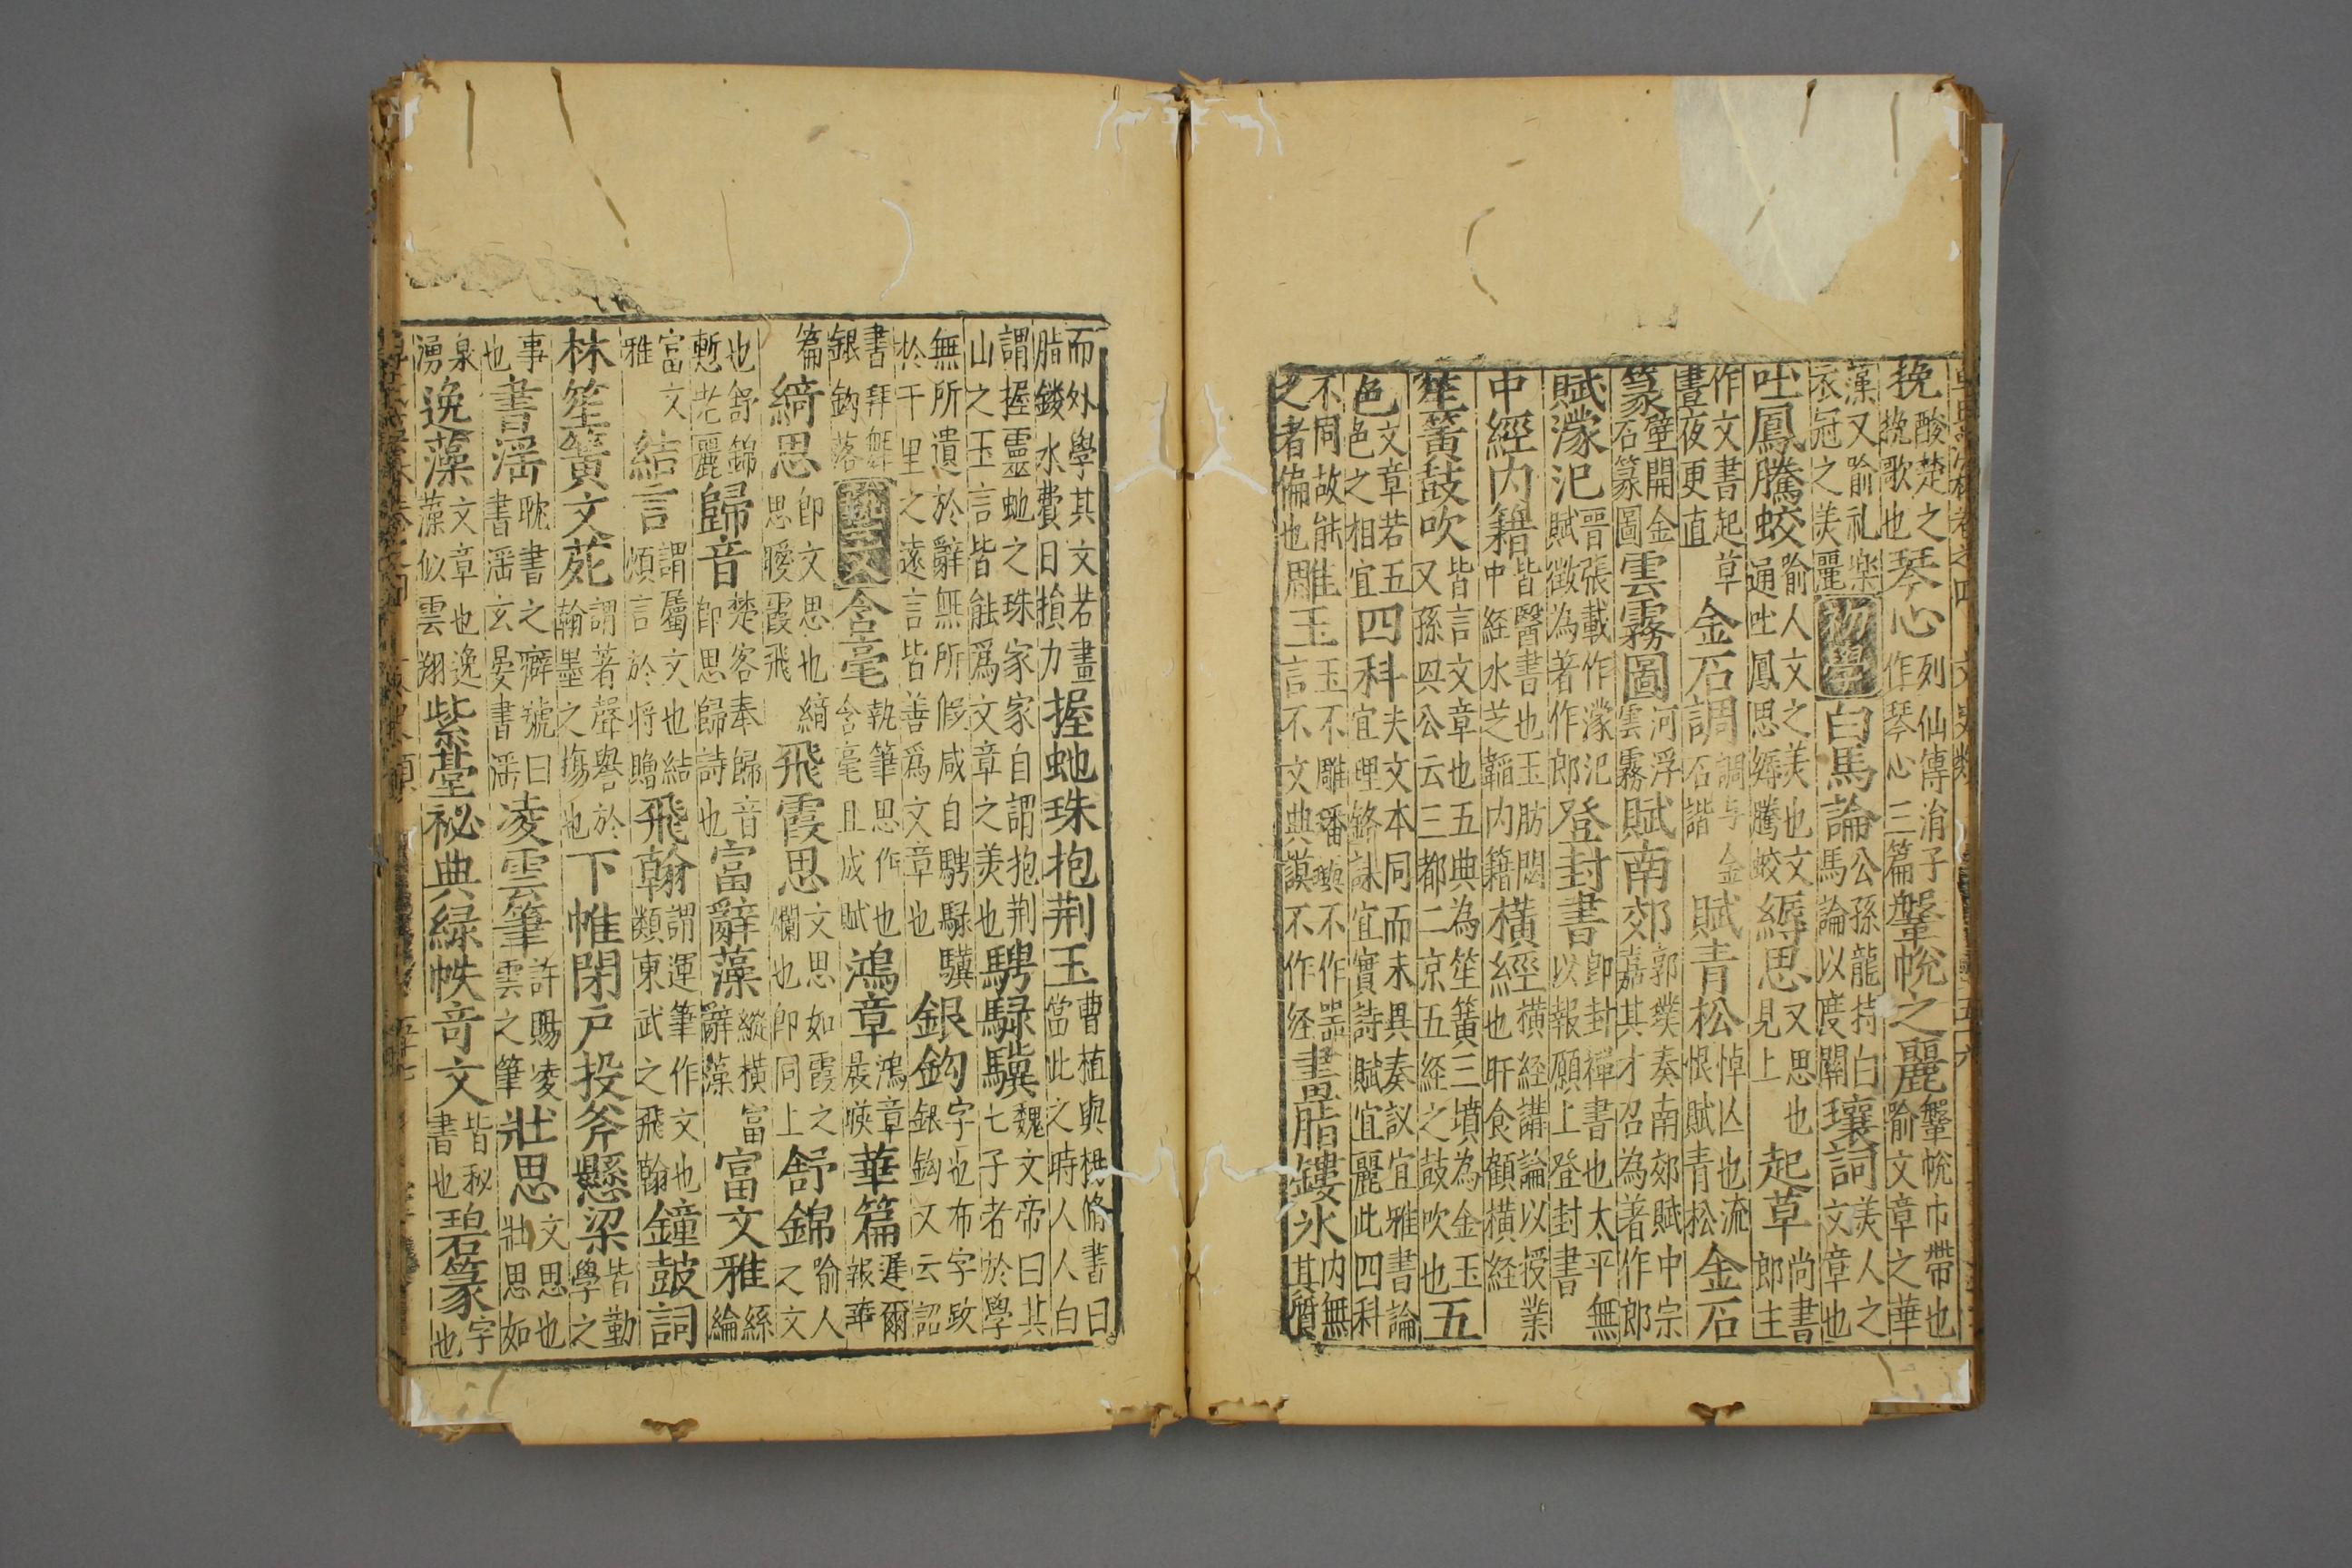 挽酸楚之挽歌也琴心列仙傳涓子作琴心三篇鞶帨之麗鞶帨巾帶也喻文章之華
藻又喻礼楽衣冠之美麗物學白馬論公孫龍持白馬論以度關瓌詞美人之文章也
吐鳳騰蛟喻人文之美也文通吐鳳思縟騰蛟縟思又思也見上起草尚書郎主
作文書起草晝夜更直金石調調与金石諧賦青松悼亾也流恨賦青松金石
篆壁開金石篆圖雲霧圖河浮雲霧賦南郊郭璞奏南郊賦中宗嘉其才召為著作郎
賦濛汜晋張載作濛汜賦徴為著作郎登封書即封禪書也太平無以報願上登封書
中經内籍皆醫書也玉肪閟中経水芝韞内籍橫經橫経講論以授業也旰食顧橫経
笙簧鼓吹皆言文章也五典為笙簧三墳為金玉又孫興公云三都二京五経之鼓吹也五
色文章若五色之相宜四科夫文本同而末異奏議宜雅書論宜理銘誄宜實詩賦宜麗此四科
不同故能之者偏也雕玉玉不雕璠璵不作噐言不文典謨不作経畫脂鏤氷内無其質
而外學其文若畫脂鏤水費日損力握虵珠抱荆玉曹植與楊脩書曰當此之時人人白
謂握靈虵之珠家家自謂抱荆山之玉言皆能爲文章之美也騁騄驥魏文帝曰其七子者於學
無所遺於辭無所假咸自騁騄驥於千里之遠言皆善爲文章也銀鈎字也布字改銀鈎又云認
書拜舞銀鈎落藝文含毫執筆思作也含毫且成賦鴻章鴻章晨暎華篇遲爾報華
篇綺思即文思也綃思曖霞飛飛霞思文思如霞之爛也即同上舒錦喻人之文
也舒錦慙光麗歸音楚客奉歸音即思歸詩也富辭藻縱橫富辭藻富文雅絲綸
富文雅結言謂屬文也結煩言於將贈飛翰謂運筆作文也類東武之飛翰鐘鼓詞
林笙簧文苑謂著聲譽於翰墨之塲也下帷閉戸投斧懸梁皆勤學之
事也書滛耽書之癖號曰書滛玄晏書滛凌雲筆許賜凌雲之筆壯思文思也壯思如
泉湧逸藻文章也逸藻似雲翔紫臺祕典緑帙竒文皆秘書也碧篆字也